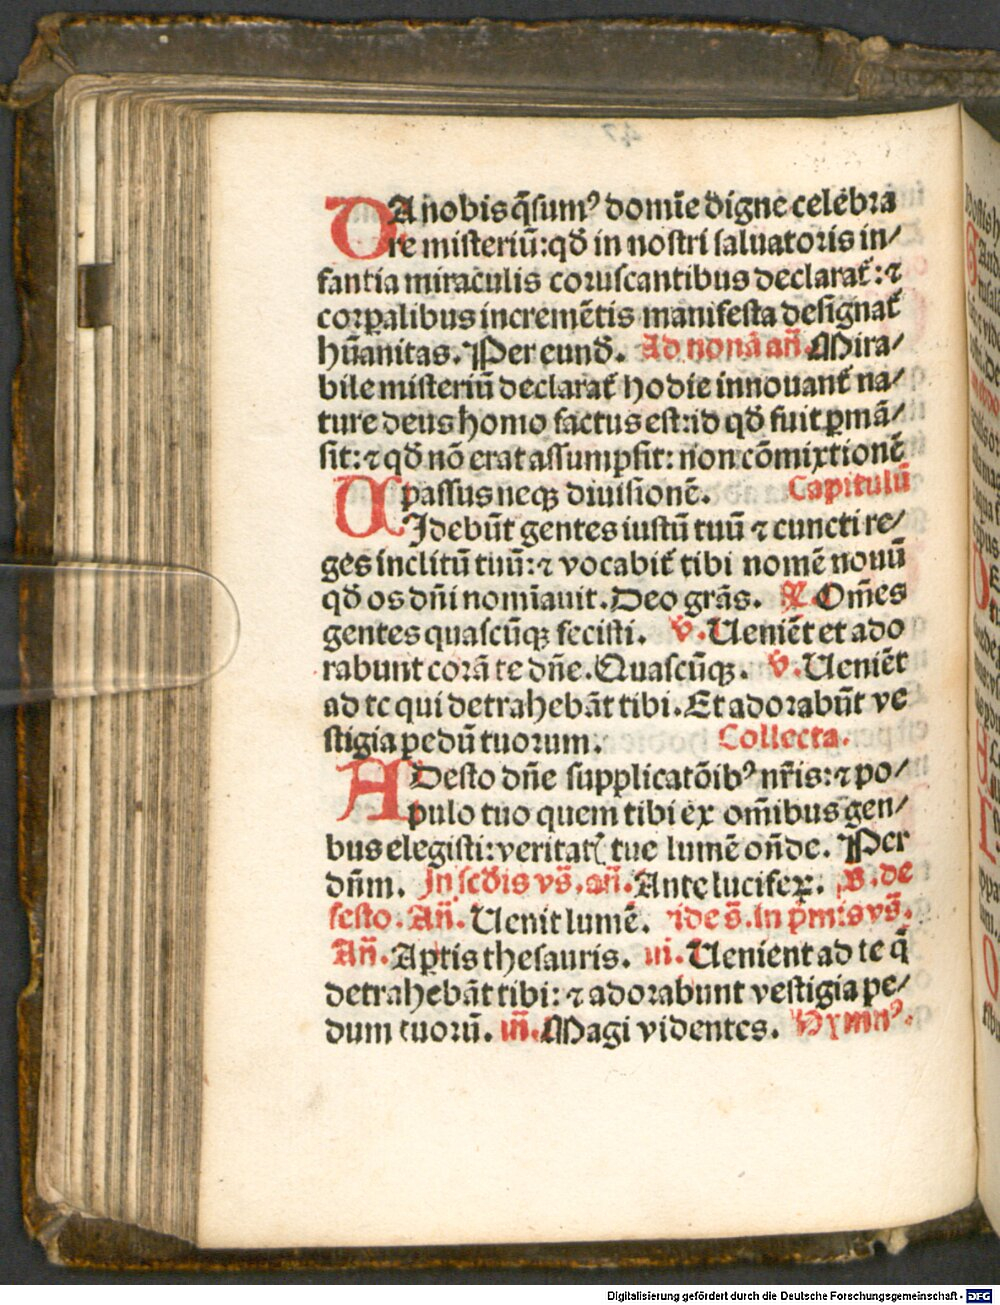 DA nobis q̄sumꝰ domīe digne celebra
re misteriū: qđ in nostri saluatoris in/
fantia miraculis coruscantibus declarat᷑: ⁊
corꝑalibus incremētis manifesta designat᷑
hūanitas. Per eunđ. Ad nonā añ. Mira/
bile misteriū declarat᷑ hodie innouant᷑ na/
ture deus homo factus est: id qđ fuit ꝑmā/
sit: ⁊ qđ nō erat assumpsit: non cōmixtionē
passus neqꝫ diuisionē. Capitulū
VIdebūt gentes iustū tuū ⁊ cuncti re/
ges inclitū tuū: ⁊ vocabit᷑ tibi nomē nouū
qđ os dñi nomīauit. Deo grās. ℟. Om̄es
gentes quascūqꝫ fecisti. ℣. Ueniēt et ado
rabunt corā te dñe. Quascūqꝫ. ℣. Ueniēt
ad te qui detrahebāt tibi. Et adorabūt ve
stigia pedū tuorum. Collecta.
ADesto dñe supplicatōibꝰ nr̄is: ⁊ po/
pulo tuo quem tibi ex om̄ibus gen/
bus elegisti: veritatꝭ tue lumē on̄de. Per
dñm. In scđis vs̄. añ. Ante luciferꝝ. B. de
festo. Añ. Uenit lumē. ide s̄. In p̄mis vs̄.
Añ. Aꝑtis thesauris. iii. Uenient ad te q̄
detrahebāt tibi: ⁊ adorabunt vestigia pe/
dum tuorū. iiii. Magi videntes. Hymnꝰ.
Digitalisierung gefördert durch die Deutsche Forschungsgemeinschaft - DFG